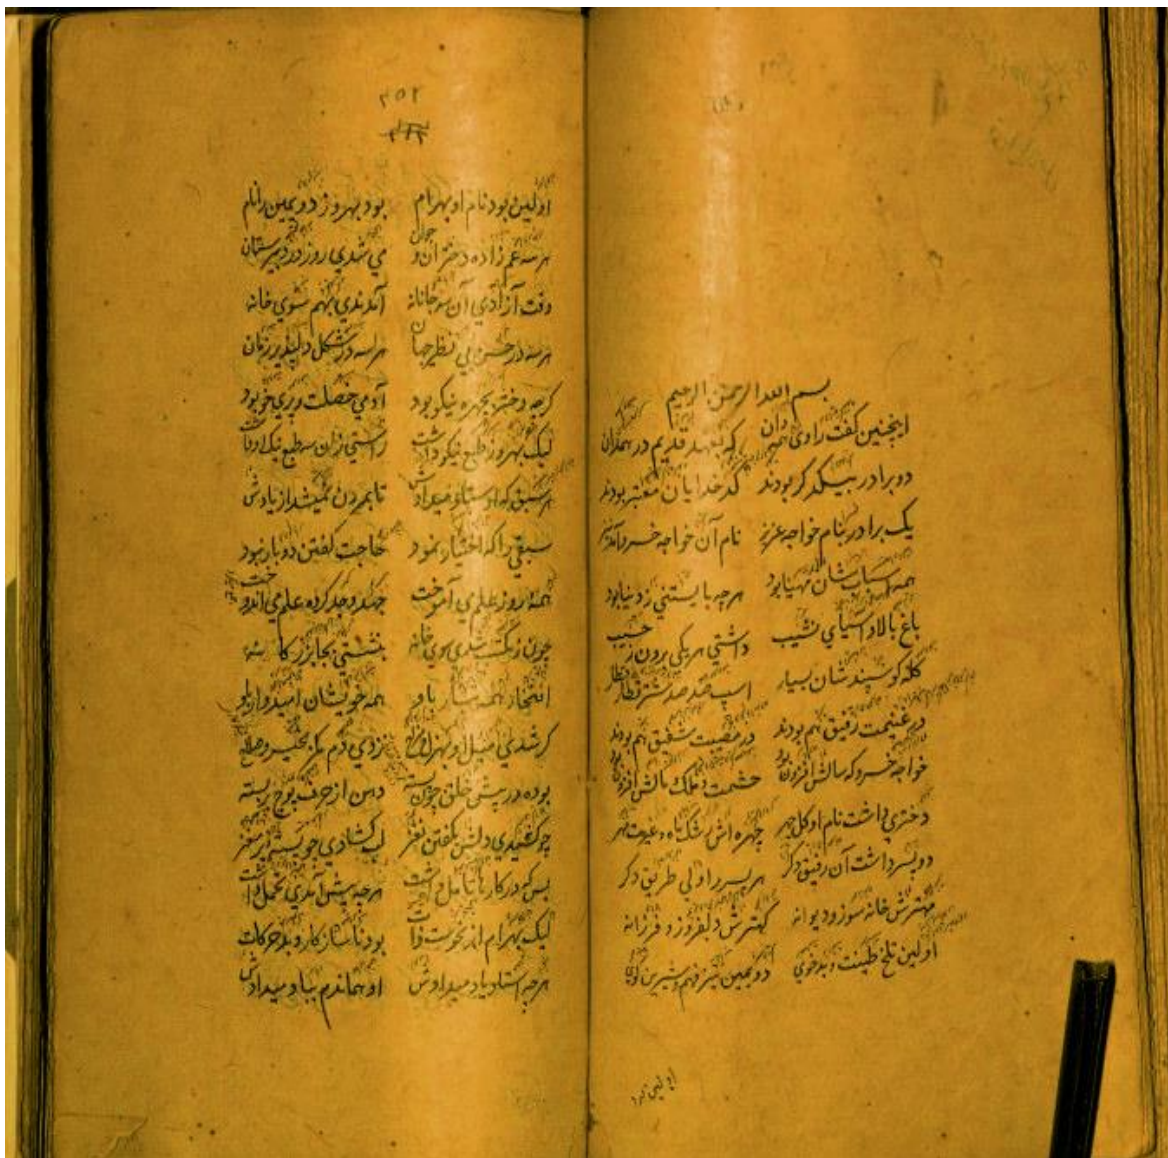 بسم الله الرحمن الرحیم
اینچنین گفت راوی همه دان که بعهد قدیم در همدان
دو برادر بیکدگر بودند کدخدایان معتبر بودند
یک برادر بنام خواجه عزیز نام آن خواجه خسرو آمد نیز
همه اسباب شان مهیا بود هرچه بایستنی ز دنیا بود
باغ بالا و آسیای نشیب داشتی هر یکی برون ز حسیب
گله گوسپند شان بسیار اسپ صد صد شتر قطار قطار
در غنیمت رفیق هم بودند در مصیبت شفیق هم بودند
خواجه خسرو که سالش افزون بود حشمت و ملک و مالش افزون بود
دختری داشت نام او گل چهر چهره اش رشک ماه و غیرت مهر
دو پسر داشت آن رفیق دگر هر پسر را ولی طریق دگر
مهترش خانه سوز و دیوانه کهترش دلفروز و فرزانه
اولین تلخ طینت و بدخوی دویمین تیز فهم و شیرین گوی
اولین بود
۲۵۲
اولین بود نام او بهرام بود بهروز دویمین را نام
هر سه عم زاده دختر آن و جوان می شدی روز در دبیرستان
وقت آزادی آن سه جانانه آمدندی بهم سوی خانه
هر سه در حسن بی نظیر جهان هر سه در شکل دلپذیر زمان
گرچه دختر بچهره نیکو بود آدمی خصلت و پری خو بود
لیک بهروز طبع نیکو داشت راستی زان سه طبع نیک او داشت
هر سبق که اوستاد میدادش تا بمردن نمیشد از یادش
سبقی را که اختیار نمود حاجت گفتن دوبار نبود
همه روز علم می آموخت جهد و جد کرده علم می اندوخت
چون ز مکتب شدی سوی خانه بنشستی بجای
افتخار همه تبار باو همه خویشان امیدوار باو
گر شدی میل او زدی دم مگر بخیر و صلاح
بوده در پیش خلق چون پسته دهن از حرف پوچ بربسته
چو کشیدی دلش بگفتن نغز لب گشادی چو پسته پر مغز
بس که در کارها تامل داشت هرچه پیش آمدی تحمل داشت
لیک بهرام از نحوست ذات بود ناساز کار و بد حرکات
هرچه استاد یاد میدادش او هماندم بباد میدادش